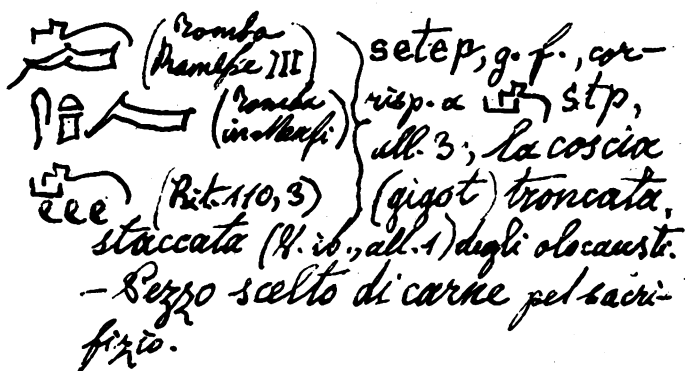 (Tomba Ramesse III)
(Tomba in Menfi)
(Rit. 110, 3)
setep, g. f., cor-
risp. a stp,
all. 3; la coscia
(gigot) troncata,
staccata (V. ib., all. 1) degli olocausti.
— Pezzo scelto di carne pel sacri-
fizio.